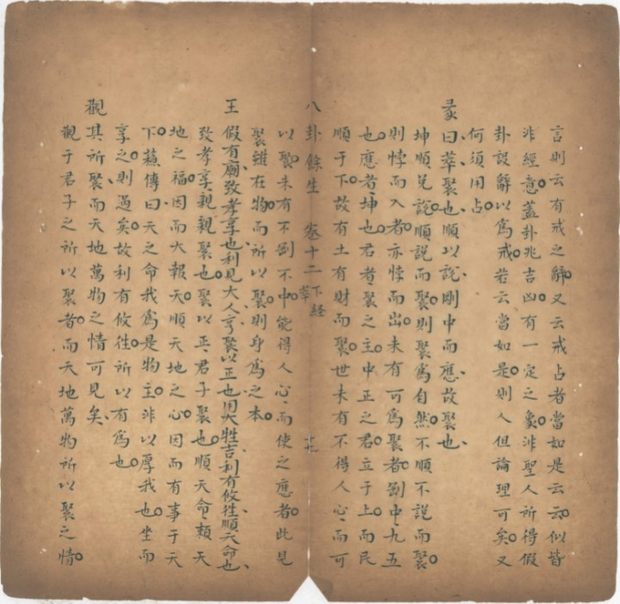 言則云有戒之辭又云戒占者當如是云云似皆
非經意蓋卦兆吉凶有一定之象非聖人所得假
卦設辭以為戒若云當如是則人但論理可矣又
何須用占
彖曰萃聚也順以說剛中而應故聚也
坤順兌說順說而聚則聚為自然不順不說而聚
則悖而入者亦悖而出未有可為聚者剛中九五
也應者坤也君者聚之主中正之君立于上而民
順于下故有土有財而聚世未有不得人心而可
八卦餘生 卷十二 下經 萃 十七
以聚未有不剛不中能得人心而使之應者此見
聚雖在物而所以聚則身為之本
王假有廟致孝享也利見大人亨聚以正也用大牲吉利有攸往順天命也
致孝享親親聚也聚以正君子聚也順天命類天
地之福因而大報天順天地之心因而有事于天
下蘓傳曰天之命我為是物主非以厚我也坐而
享之則過矣故利有攸往所以有為也
觀其所聚而天地萬物之情可見矣
觀于君子之所以聚者而天地萬物所以聚之情